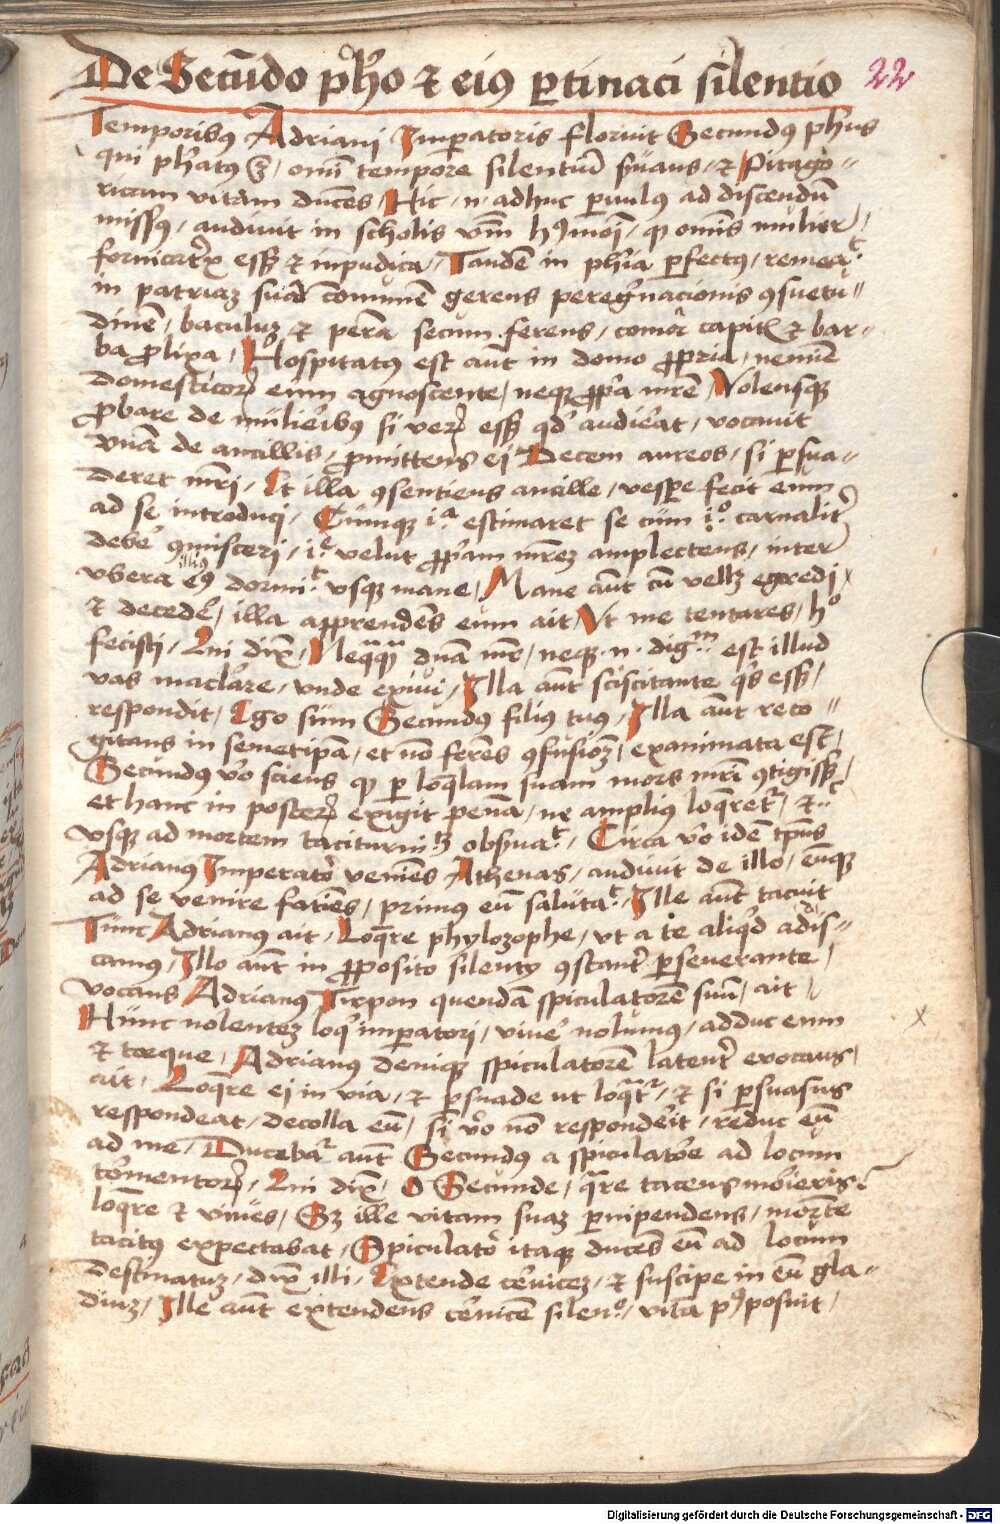 De Secūdo pħo ⁊ eiꝰ ꝑtinaci silentio 22
Temporibꝰ Adriani Imꝑatoris floruit Secundus pħus
qui pħatꝰ ē, omī tempore silentiū ẜuans, ⁊ Pitago-
ricam vitam ducēs, Hic .n. adhuc ꝑuulus ad discendū
missꝰ, audiuit in scholis, ꝙ omīs mulier
fornicatrix esset ⁊ inpudica, Tandē in pħia ꝑfectꝰ, remeat
in patriaꝫ suā comunē gerens peregrinacionis ꝯsuetu-
dinē, baculuꝫ ⁊ peram secum ferens, coma capitꝭ ⁊ bar-
ba ꝓlixa, Hospitatꝰ est aūt in domo ꝓpria, nemīe
domesticoꝝ eum agnoscente, neqꝫ ꝓpa mr̄e, Volensqꝫ
ꝓbare de mulieribꝰ si veꝝ esset qd̓ audierat, vocauit
vnā de ancillis, ꝓmittens ei Decem aureos, si ꝑsua-
deret mr̄i, Et illa ꝯsentiens ancille, vespe fecit eum
ad se introduci, Cumqꝫ iᵃ estimaret se cum iᵒ carnalit̓
debe̓ ꝯmisceri, iᵉ velut ꝓpam mr̄eꝫ amplectens, inter
vbera eiꝰ illius dormiᵗ vsqꝫ mane, Mane aūt cū vellet egredi
⁊ decede̓, illa apprendēs eum ait, Vt me tentares, hᵒ
fecisti, Cui dix̄, Neqͣqͣ dn̄a mr̄, neqꝫ .n. digᵐ est illud
vas maclare, vnde exiui, Illa aūt sciscitante qͥs esset,
respondit, Ego sum Secundus filius tuꝰ, Illa aūt reco-
gitans in semetipsā, et nō ferēs ꝯfusioꝫ, exanimata est,
Secundus v̓o sciens ꝙ ꝑ loqͣlam suam mors mr̄i ꝯtigisset
et hanc in posteꝝ exigit penā, ne amplius loqueret̓, ⁊
vsqꝫ ad mortem taciturni obẜuaᵗ, Circa v̓o idē tp̄us
Adrianus Imperator veniēs Athenas, audiuit de illo, eūqꝫ
ad se venire faciēs, primus eū salutaᵗ, Ille aūt tacuit
Tunc Adrianus ait, Loqr̄e phylozophe, vt a te aliqd̓ adis-
camus, Illo aūt in ꝓposito silentij ꝯstanter ꝑseuerante,
vocans Adrianus Tirpon quendā spiculatorē suū, ait
Hunc nolenteꝫ loq̓ imꝑatori, viue̓ nolumus, adduc eum
⁊ torque, Adrianus deniqꝫ spiculatorē latenter euocans,
ait, Loqr̄e ei in via, ⁊ ꝑsuade ut loqͣtʳ, ⁊ si ꝑsuasus
respondeat, decolla eū, si v̓o nō responderit, reduc eū
ad me, Ducebat̓ aūt Secundus a spiculatore ad locum
tormentoꝝ, Cui dix̄, O Secunde, qͣre tacens morieris?
loqr̄e ⁊ viues, Sꝫ ille vitam suaꝫ ꝑuipendens, mortē
tacitꝰ expectabat, Spiculator itaqꝫ ducēs eū ad locum
destinatuꝫ, dix̄ illi, Extende ceruiceꝫ, ⁊ suscipe in eū gla-
diuꝫ, Ille aūt extendens ceruicē silenᵒ, vitā posuit,
Digitalisierung gefördert durch die Deutsche Forschungsgemeinschaft - DFG